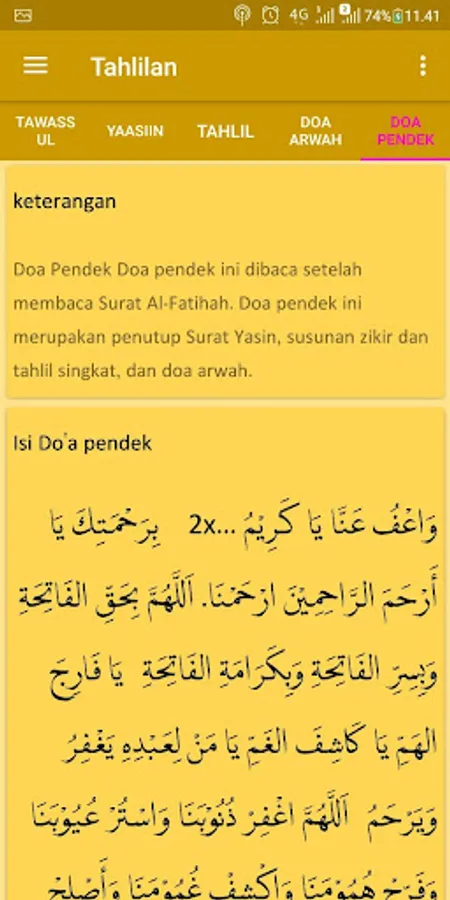 4G 2 74% 11.41
Tahlilan
TAWASS
UL
YAASIIN
TAHLIL
DOA
ARWAH
DOA
PENDEK
keterangan
Doa Pendek Doa pendek ini dibaca setelah
membaca Surat Al-Fatihah. Doa pendek ini
merupakan penutup Surat Yasin, susunan zikir dan
tahlil singkat, dan doa arwah.
Isi Do'a pendek
وَاعْفُ عَنَّا يَا كَرِيْمُ ...2x بِرَحْمَتِكَ يَا
أَرْحَمَ الرَّاحِمِيْنَ ارْحَمْنَا. اَللَّهُمَّ بِحَقِّ الفَاتِحَةِ
وَبِسِرِّ الفَاتِحَةِ وَبِكَرَامَةِ الفَاتِحَةِ يَا فَارِجَ
الهَمِّ يَا كَاشِفَ الغَمِّ يَا مَنْ لِعَبْدِهِ يَغْفِرُ
وَيَرْحَمُ اَللَّهُمَّ اغْفِرْ ذُنُوْبَنَا وَاسْتُرْ عُيُوْبَنَا
وَفَرِّحْ هُمُوْمَنَا وَاكْشِفْ غُمُوْمَنَا وَأَصْلِحْ